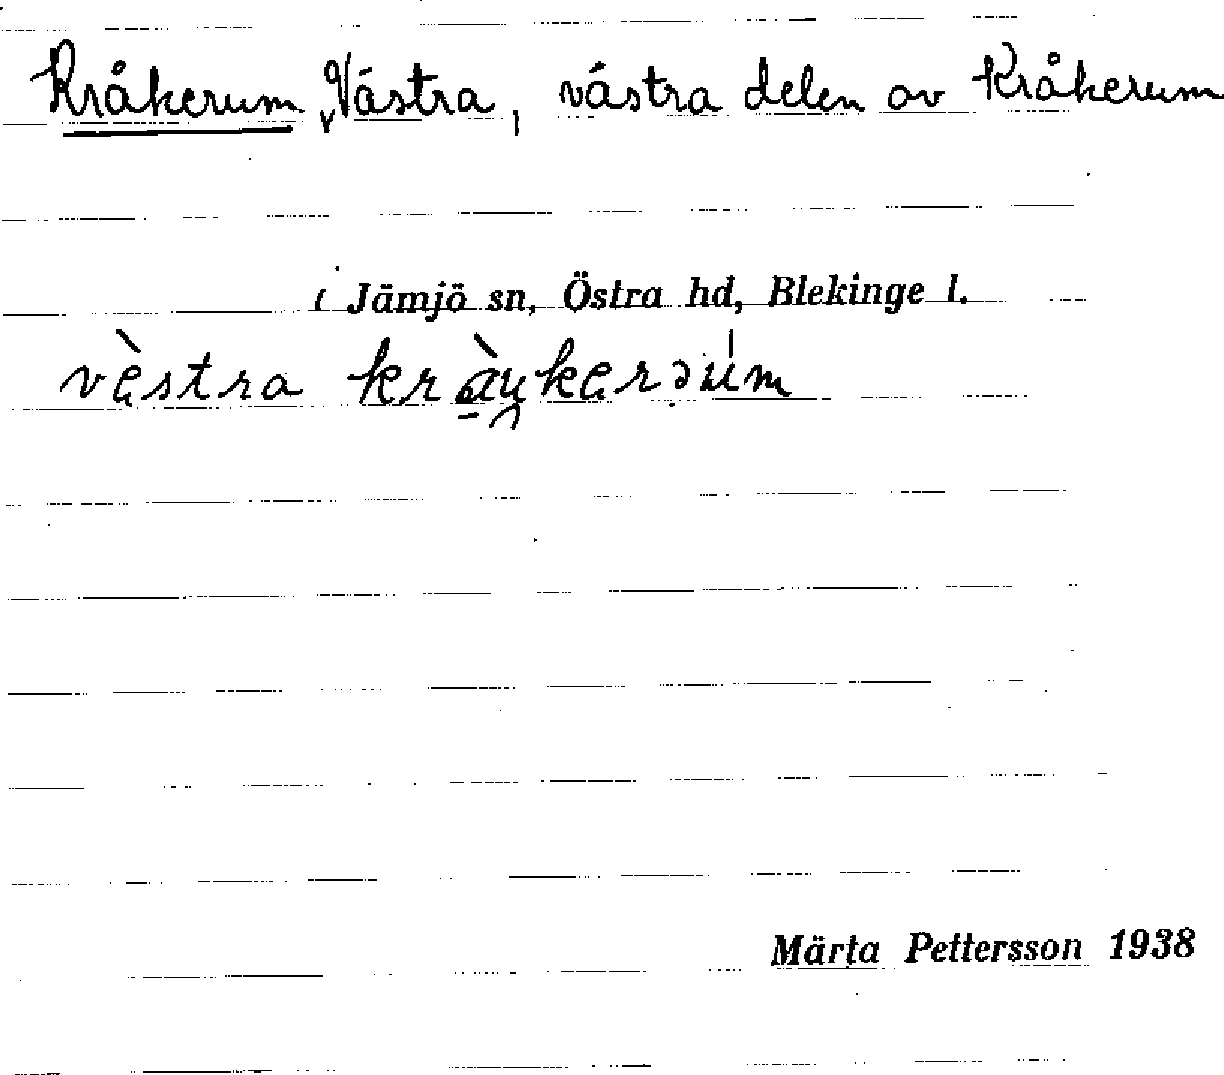 Kråkerum, Västra, västra delen av Kråkerum
i Jämjö sn, Östra hd, Blekinge l.
vèstra kràu̯kerəúm
Märta Pettersson 1938